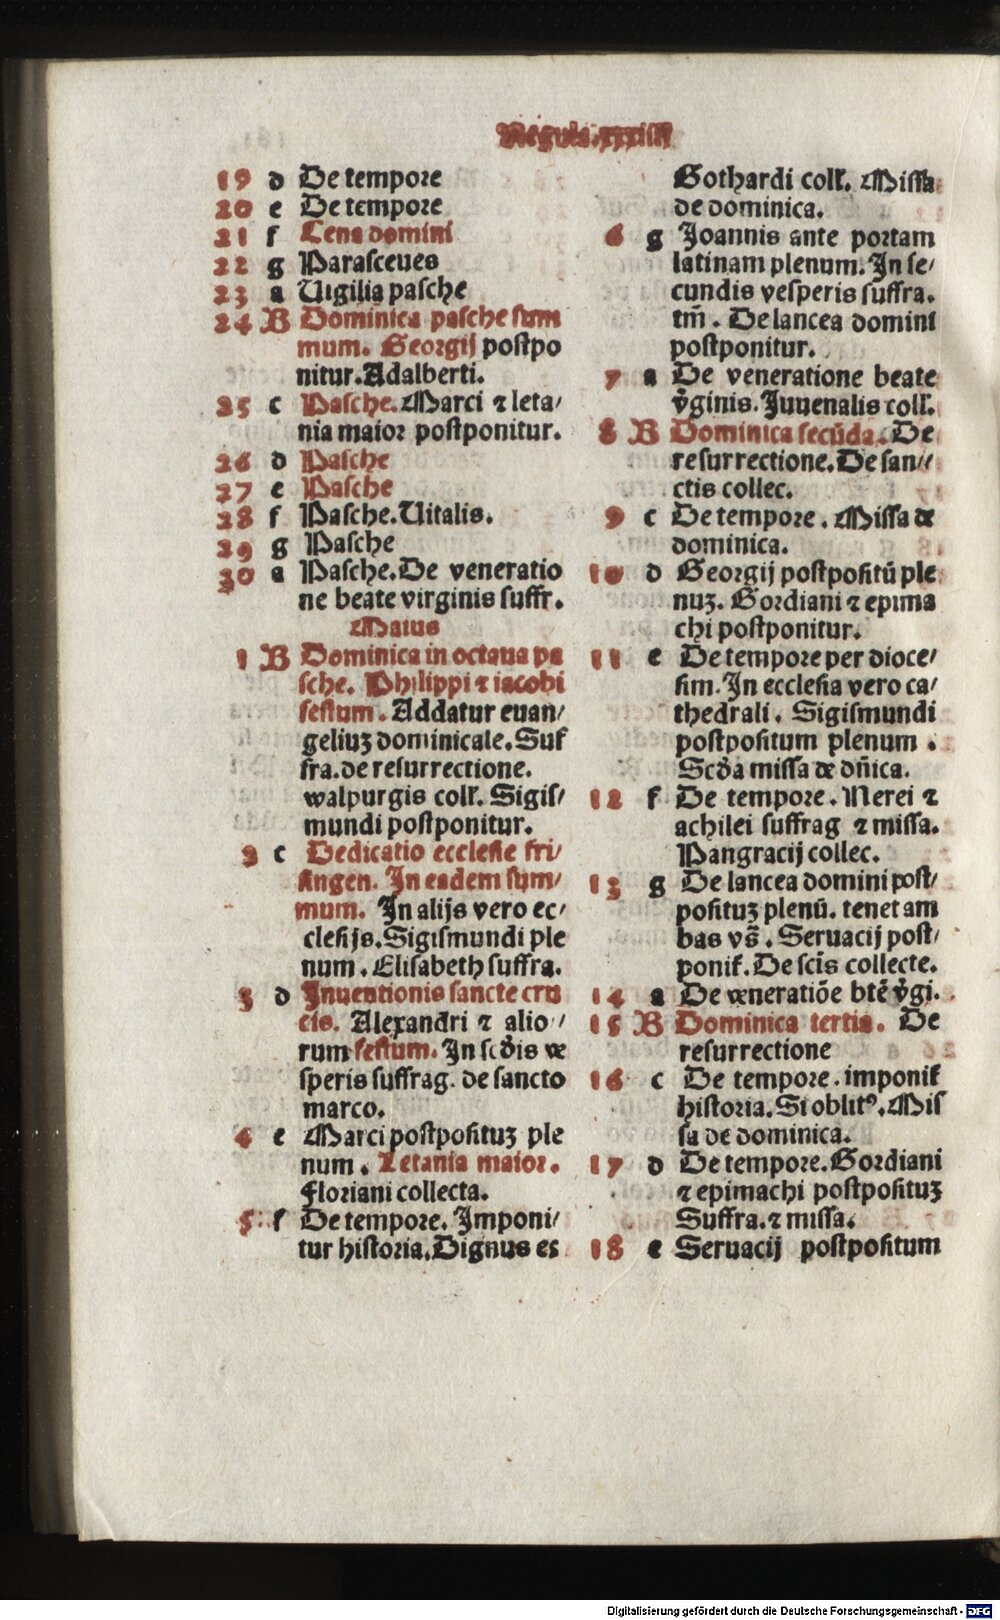 Regula.xxxiiij
19 d De tempore
20 e De tempore
21 f Cena domini
22 g Parasceues
23 a Uigilia pasche
24 B Dominica pasche sum
mum. Georgij postpo
nitur. Adalberti.
25 c Pasche. Marci ⁊ leta⸗
nia maior postponitur.
26 d Pasche
27 e Pasche
28 f Pasche. Uitalis.
29 g Pasche
30 a Pasche. De veneratio
ne beate virginis suffr.
Maius
1 B Dominica in octaua pa
sche. Philippi ⁊ iacobi
festum. Addatur euan⸗
geliuʒ dominicale. Suf
fra. de resurrectione.
walpurgis coll'. Sigis⸗
mundi postponitur.
2 c Dedicatio ecclesie fri⸗
singen. In eadem sum⸗
mum. In alijs vero ec⸗
clesijs. Sigismundi ple
num. Elisabeth suffra.
3 d Inuentionis sancte cru
cis. Alexandri ⁊ alio⸗
rum festum. In scd̄is ve
speris suffrag. de sancto
marco.
4 e Marci postposituʒ ple
num. Letania maior.
Floriani collecta.
5 f De tempore. Imponi⸗
tur historia. Dignus es
Gothardi coll'. Missa
de dominica.
6 g Joannis ante portam
latinam plenum. In se⸗
cundis vesperis suffra.
tm̄. De lancea domini
postponitur.
7 a De veneratione beate
v̄ginis. Juuenalis coll'.
8 B Dominica secūda. De
resurrectione. De san⸗
ctis collec.
9 c De tempore. Missa de
dominica.
10 d Georgij postpositū ple
nuʒ. Gordiani ⁊ epima
chi postponitur.
11 e De tempore per dioce⸗
sim. In ecclesia vero ca⸗
thedrali. Sigismundi
postpositum plenum.
Scd̄a missa de dn̄ica.
12 f De tempore. Nerei ⁊
achilei suffrag ⁊ missa.
Pangracij collec.
13 g De lancea domini post⸗
posituʒ plenū. tenet am
bas vs̄. Seruacij post⸗
ponit'. De scīs collecte.
14 a De veneratiōe btē v̄gi.
15 B Dominica tertia. De
resurrectione
16 c De tempore. imponit'
historia. Si oblitꝰ. Mis
sa de dominica.
17 d De tempore. Gordiani
⁊ epimachi postposituʒ
Suffra. ⁊ missa.
18 e Seruacij postpositum
Digitalisierung gefördert durch die Deutsche Forschungsgemeinschaft - DFG